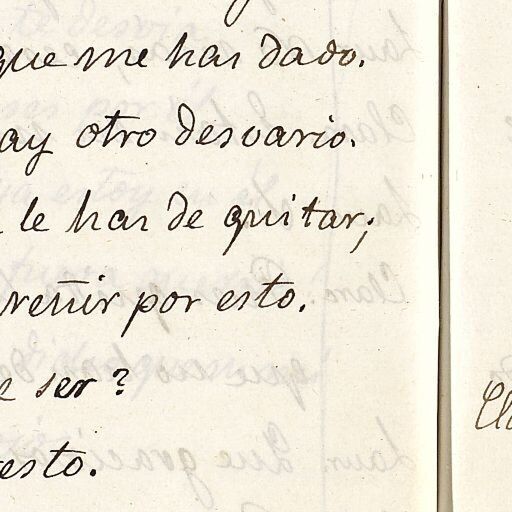 que me has dado.
ay otro desvario.
le has de quitar;
reñir por esto.
ser?
esto.